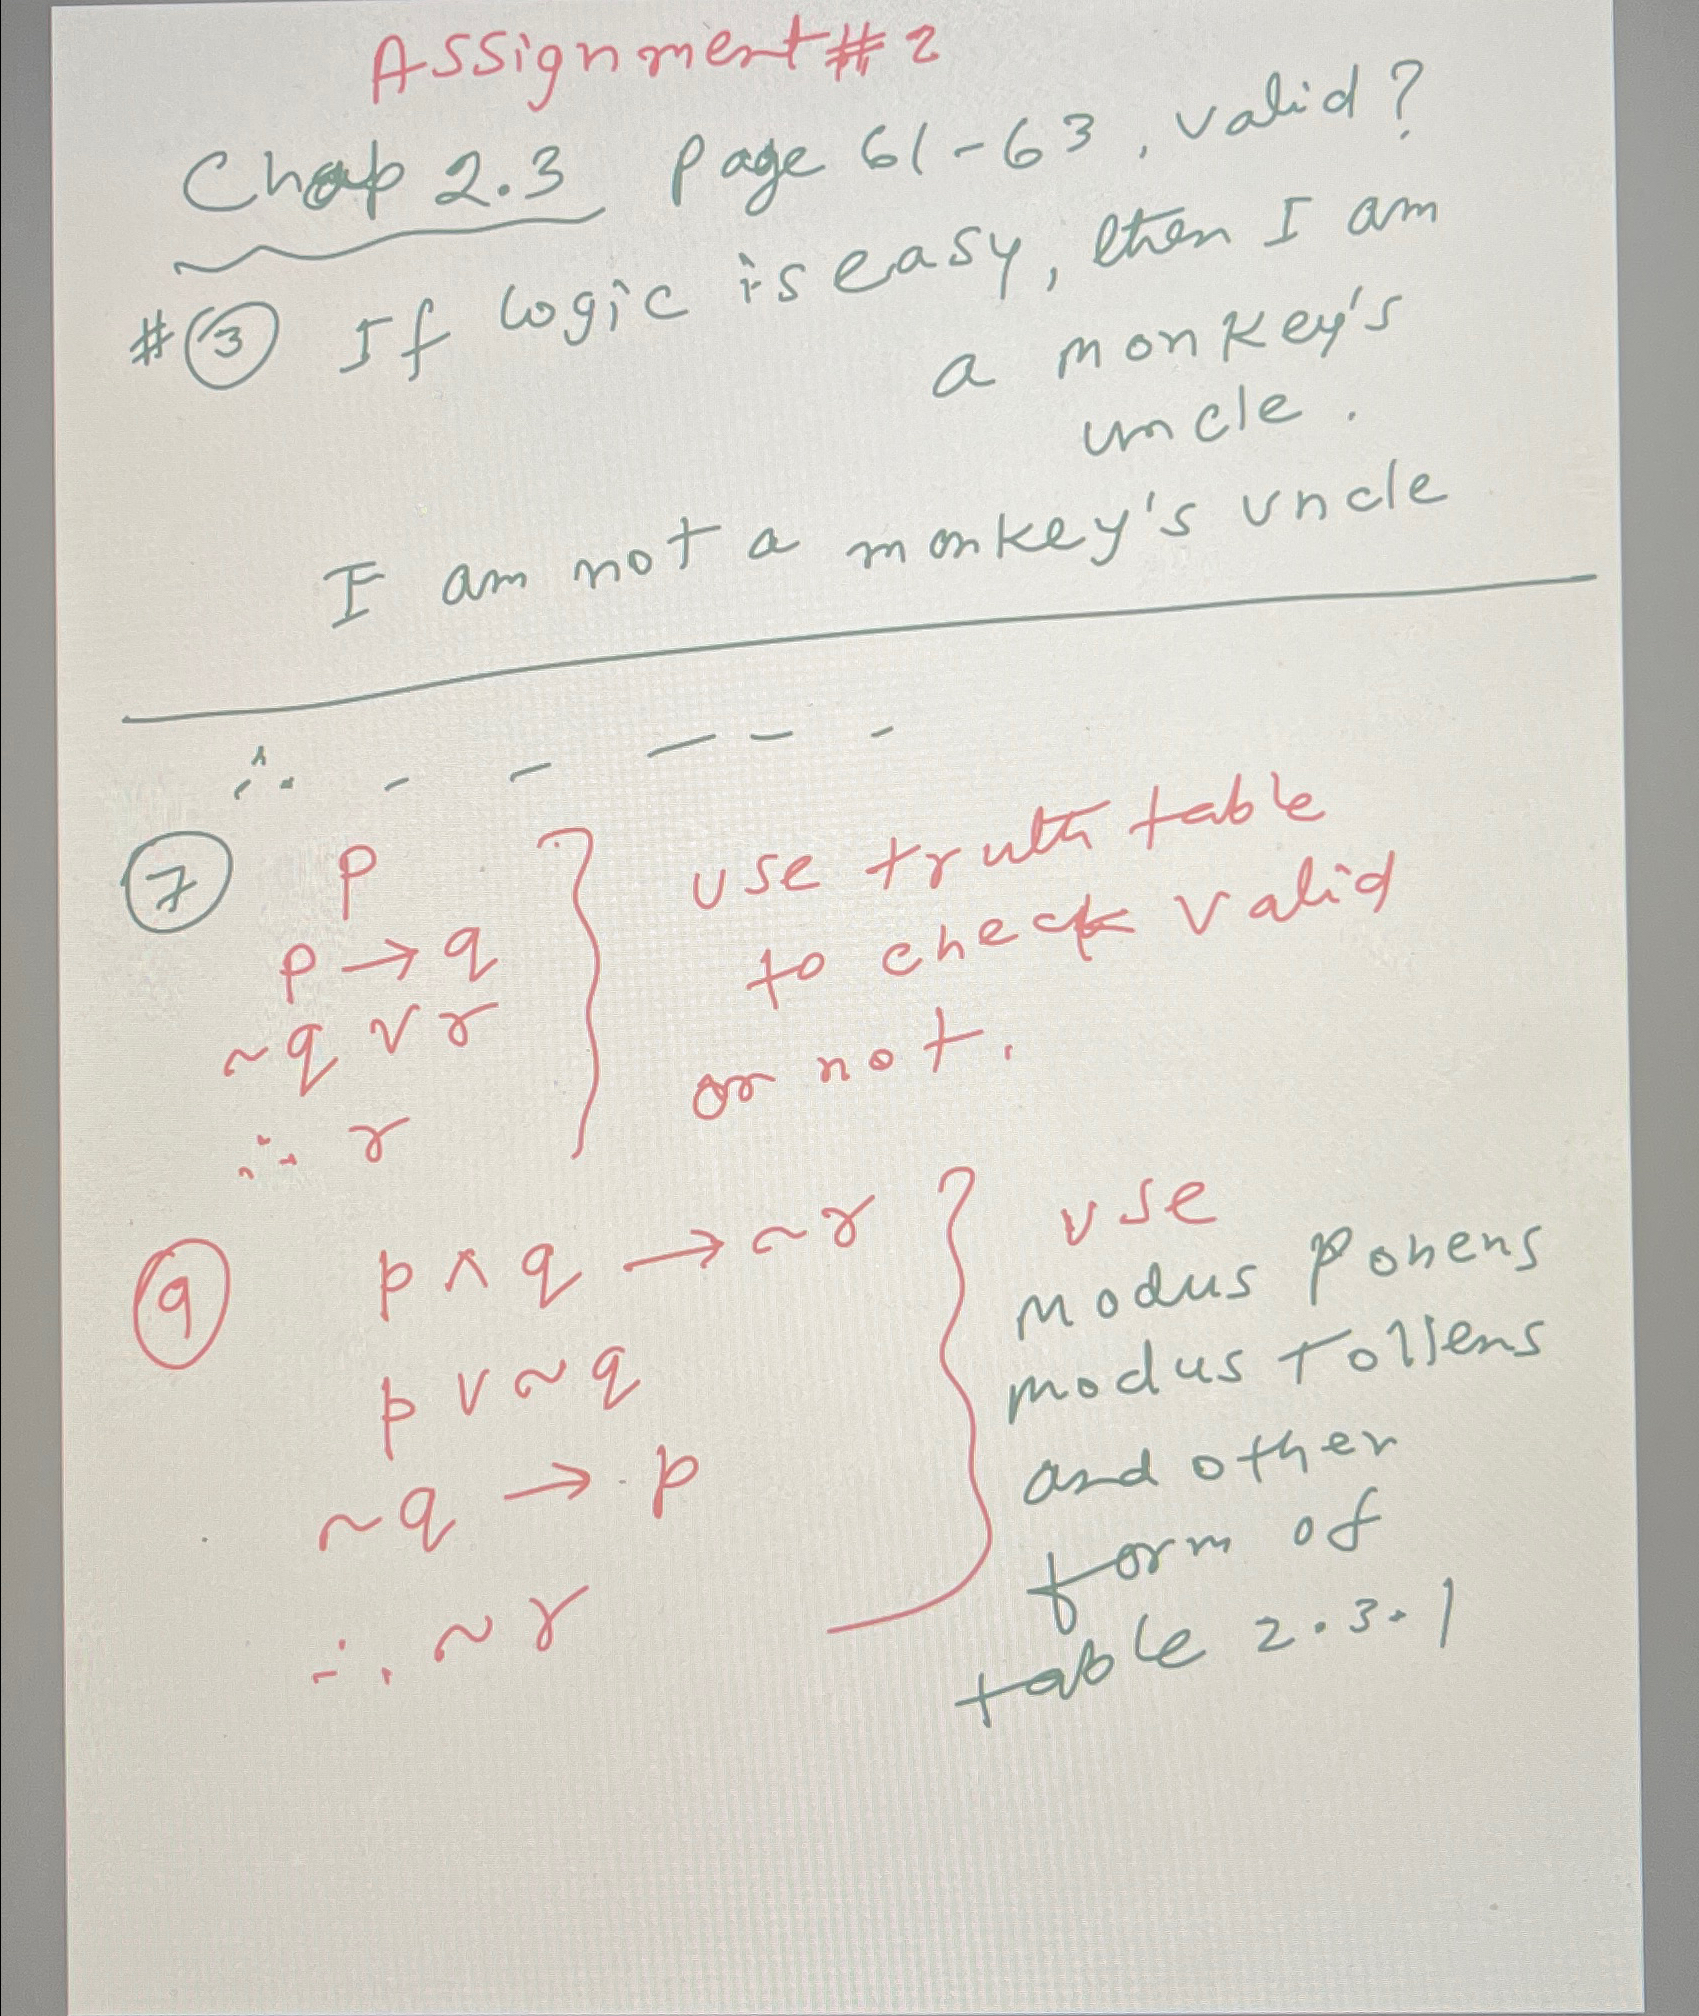 Assignment # 2
Chap 2.3 Page 61-63, valid?
#③ If logic is easy, then I am
a monkey's
uncle.
I am not a monkey's uncle
∴ - - - - -
⑦ p
p → q
~q ∨ r
∴ r
use truth table
to check valid
or not.
⑨ p ∧ q → ~r
p ∨ ~q
~q → p
∴ ~r
use
modus Ponens
modus Tollens
and other
form of
table 2.3.1